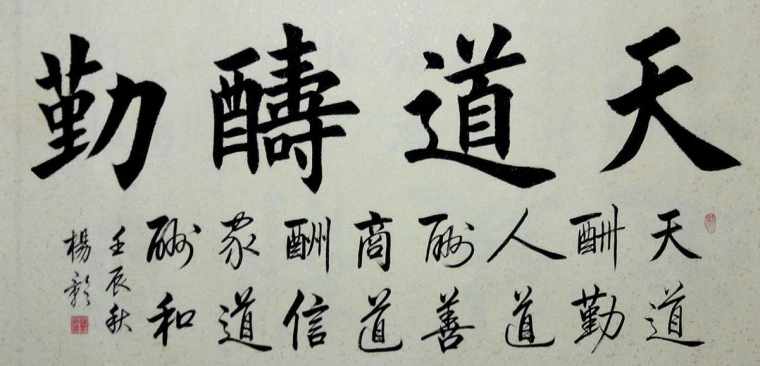 天道醻勤
天道
酬勤
人道
酬善
商道
酬信
家道
酬和
壬辰秋
楊